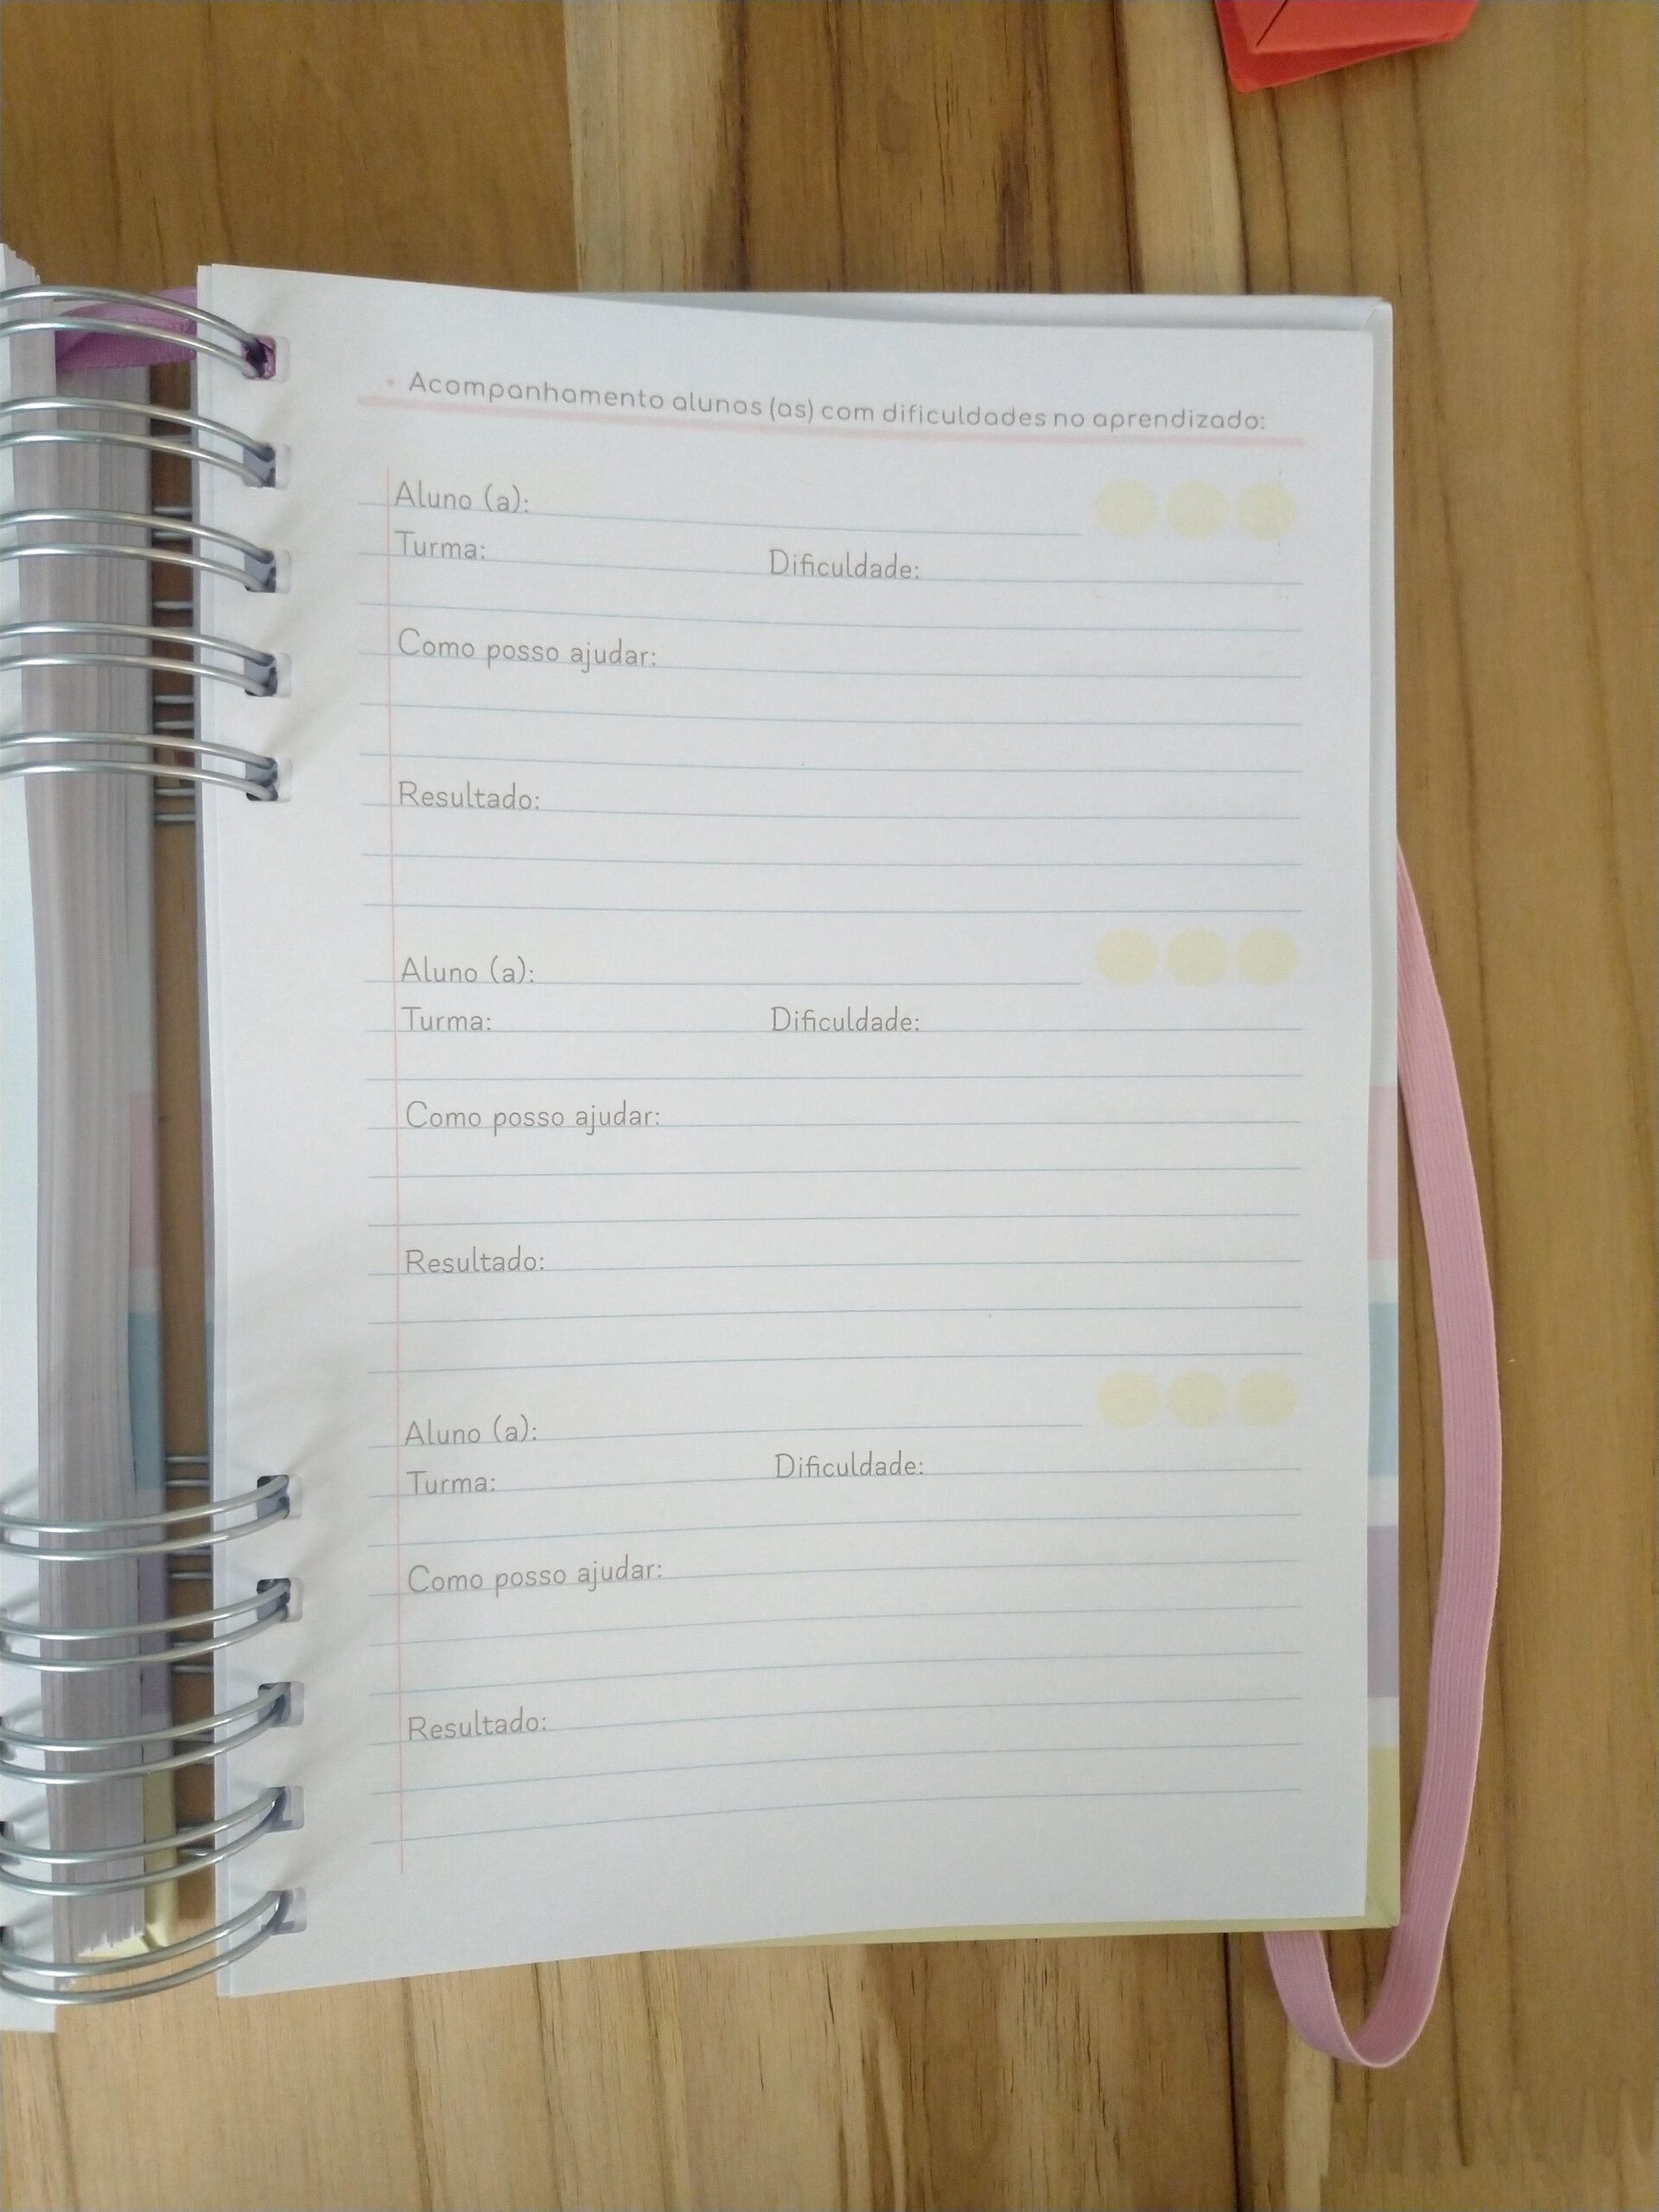 Acompanhamento alunos (as) com dificuldades no aprendizado:
Aluno (a):
Turma: Dificuldade:
Como posso ajudar:
Resultado:
Aluno (a):
Turma: Dificuldade:
Como posso ajudar:
Resultado:
Aluno (a):
Turma: Dificuldade:
Como posso ajudar:
Resultado: